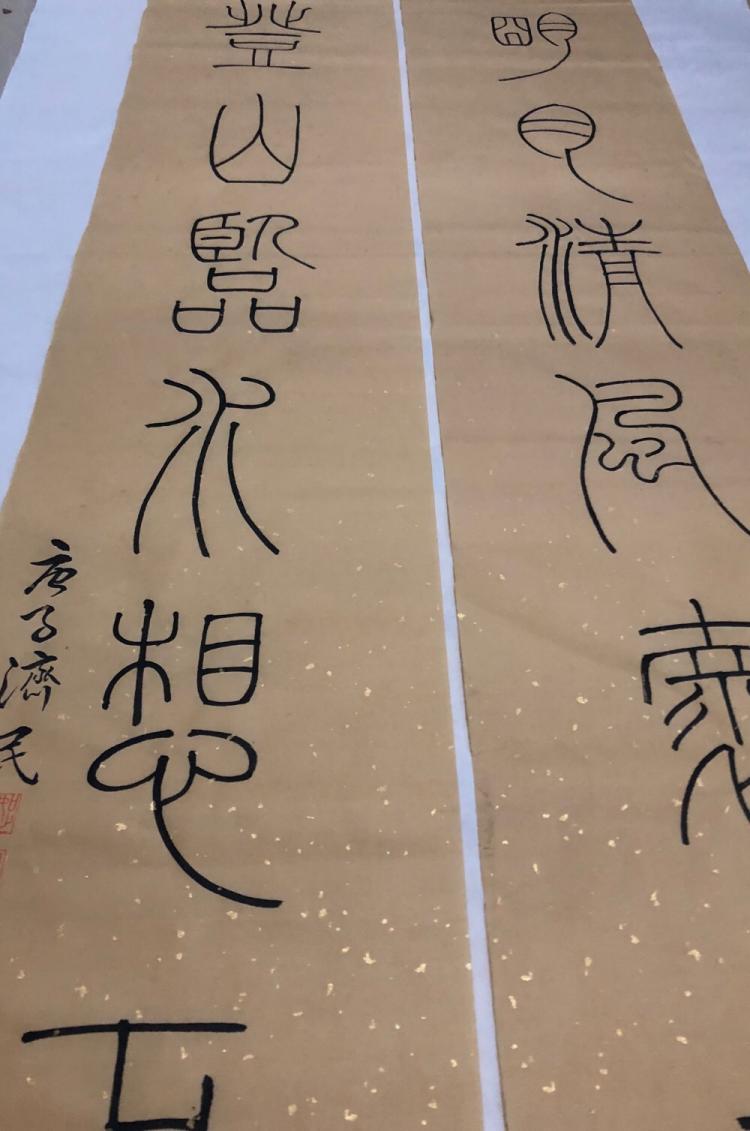 明月清風
登山臨水想
庚子濟民